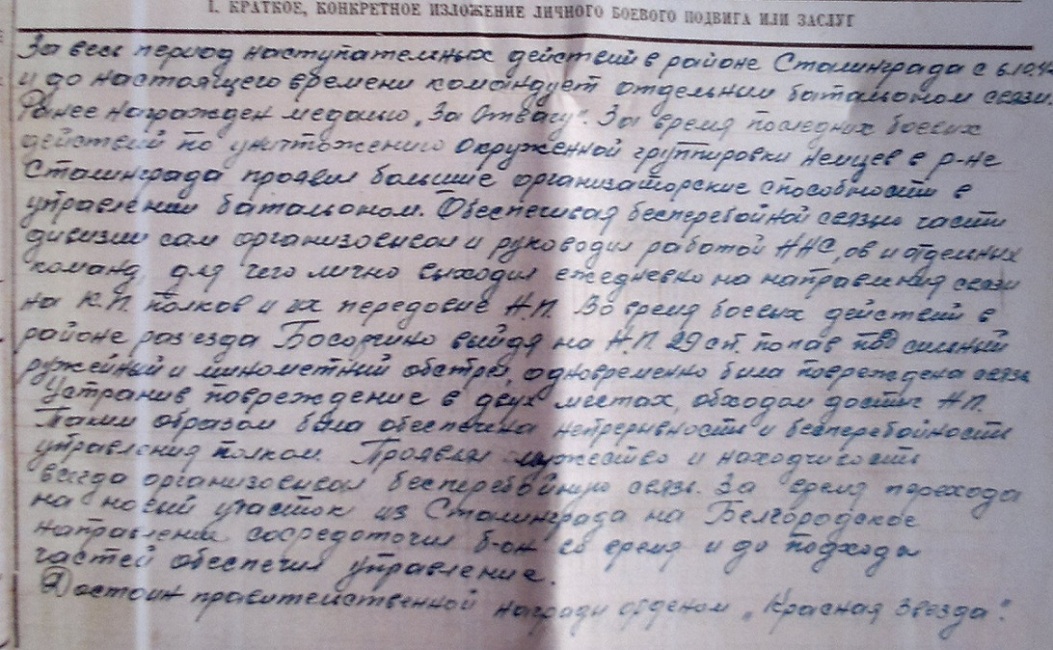 I. КРАТКОЕ, КОНКРЕТНОЕ ИЗЛОЖЕНИЕ ЛИЧНОГО БОЕВОГО ПОДВИГА ИЛИ ЗАСЛУГ
За весь период наступательных действий в районе Сталинграда с 6.10.42
и до настоящего времени командует отдельним батальоном связи.
Ранее награжден медалью „За Отвагу". За время последних боевых
действий по уничтожению окруженной группировки немцев в р-не
Сталинграда проявил большие организаторские способности в
управлении батальоном. Обеспечивая бесперебойной связью части
дивизии сам организовывал и руководил работой ННС,ов и отдельных
команд, для чего лично выходил ежедневно на направления связи
на К.П. полков и их передовие Н.П. Во время боевых действий в
районе раз'езда Босоргино выйдя на Н.П. 29 сп. попав под сильний
ружейный и минометний обстрел, одновременно была повреждена связь
Устранив повреждение в двух местах, обходом достиг Н.П.
Таким образом была обеспечена непрерывность и бесперебойность
управления полком. Проявляя мужество и находчивость
всегда организовывал бесперебойную связь. За время перехода
на новый участок из Сталинграда на Белгородское
направлении сосредоточил б-он во время и до подхода
частей обеспечил управление.
Достоин правительственной награди орденом „Красная Звезда".